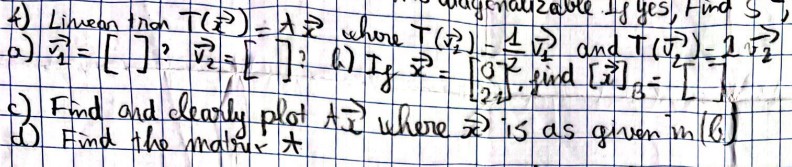 diagonalizable If yes, Find S
4) Linear tran T(x⃗) = A x⃗ where T(v⃗₁) = 1/2 v⃗₁ and T(v⃗₂) = 2 v⃗₂
a) v⃗₁ = [ ]? v⃗₂ = [ ]? b) If x⃗ = [ ], find [x⃗]_B = [ ]
c) Find and clearly plot A x⃗ where x⃗ is as given in (b)
d) Find the matrix A